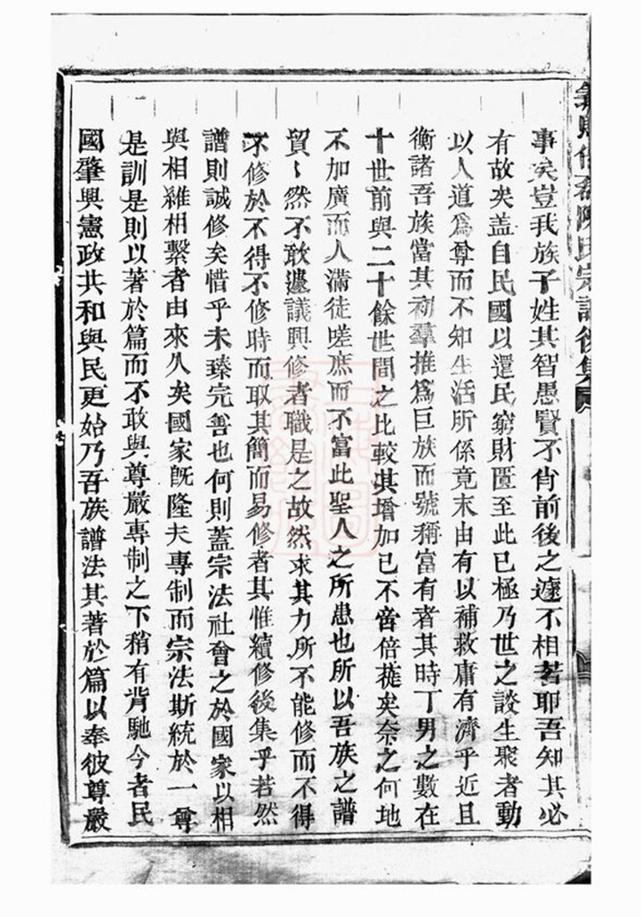 陳氏宗譜後集
事矣豈我族子姓其智愚賢不肖前後之遽不相若耶吾知其必
有故矣蓋自民國以還民窮財匱至此已極乃世之談生聚者動
以人道為尊而不知生活所係竟末由有以補救庸有濟乎近且
衡諸吾族當其初羣推為巨族而號稱富有者其時丁男之數在
十世前與二十餘世間之比較其增加已不啻倍蓰矣奈之何地
不加廣而人滿徒嗟庶而不富此聖人之所患也所以吾族之譜
貿〻然不敢遽議興修者職是之故然求其力所不能修而不得
不修於不得不修時而取其簡而易修者其惟續修後集乎若然
譜則誠修矣惜乎未臻完善也何則蓋宗法社會之於國家以相
與相維相繫者由來久矣國家旣隆夫專制而宗法斯統於一尊
是訓是則以著於篇而不敢與尊嚴專制之下稍有背馳今者民
國肇興憲政共和與民更始乃吾族譜法其著於篇以奉彼尊嚴